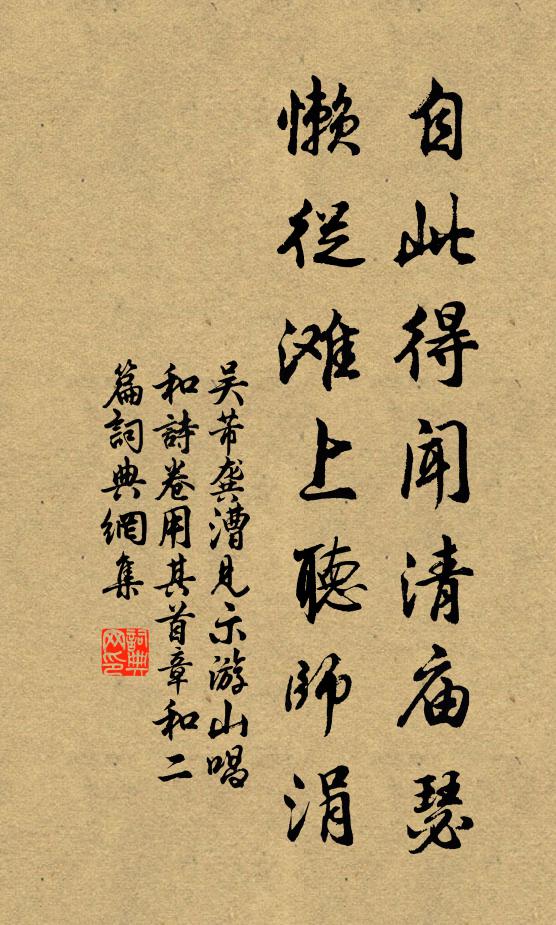 自此得闻清庙瑟
懒從滩上聽師涓
吴芾龚漕見示游山唱
和詩卷用其首章和二
篇詞典網集
詞典网印